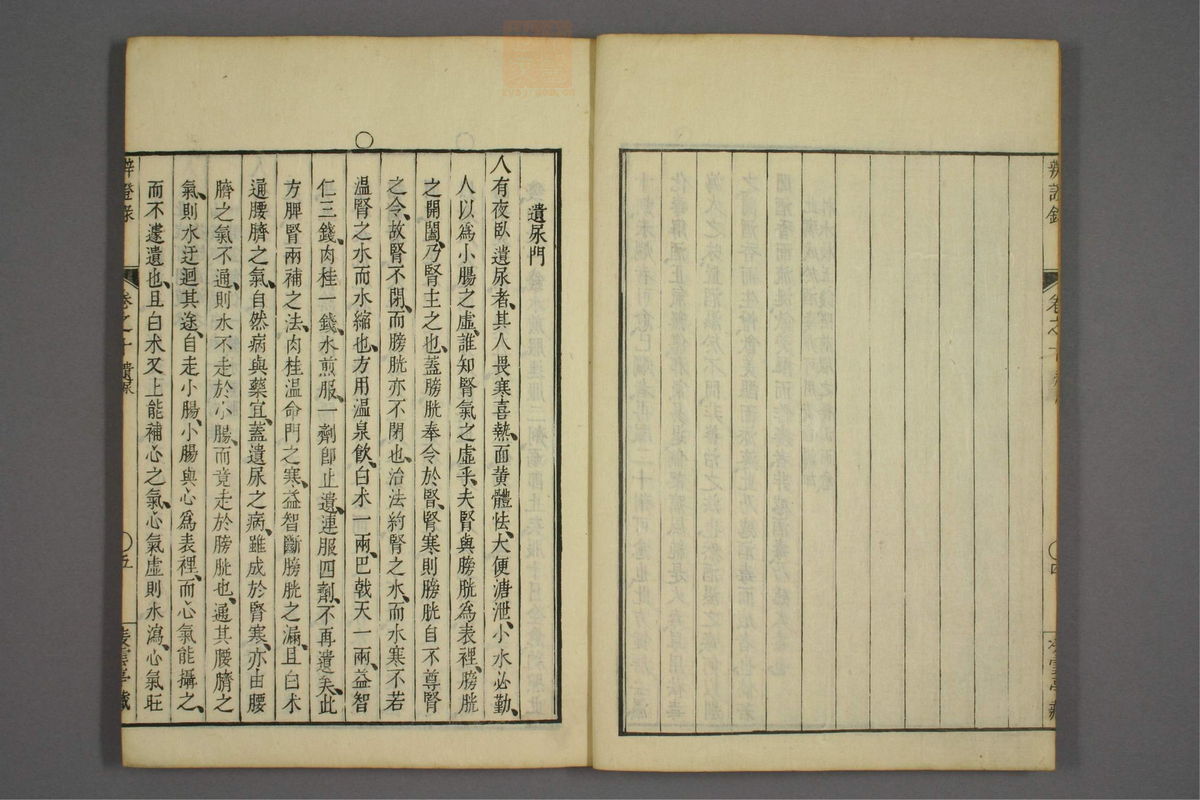 辨證錄
卷之十
四
遺尿門
人有夜臥遺尿者、其人畏寒喜熱、面黃體怯、大便溏泄、小水必勤、
人以爲小腸之虛、誰知腎氣之虛乎、夫腎與膀胱爲表裡、膀胱
之開闔、乃腎主之也、蓋膀胱奉令於腎、腎寒則膀胱自不尊腎
之令、故腎不閉、而膀胱亦不閉也、治法約腎之水、而水寒不若
溫腎之水而水縮也、方用溫泉飲、白术一兩、巴戟天一兩、益智
仁三錢、肉桂一錢、水煎服、一劑卽止遺、連服四劑、不再遺矣、此
方脾腎兩補之法、肉桂溫命門之寒、益智斷膀胱之漏、且白术
通腰臍之氣、自然病與藥宜、蓋遺尿之病、雖成於腎寒、亦由腰
臍之氣不通、則水不走於小腸、而竟走於膀胱也、通其腰臍之
氣、則水迂迴其途、自走小腸、小腸與心爲表裡、而心氣能攝之、
而不遽遺也、且白术又上能補心之氣、心氣虛則水瀉、心氣旺
辨證錄
卷之十
遺尿
五
凌雲亭藏